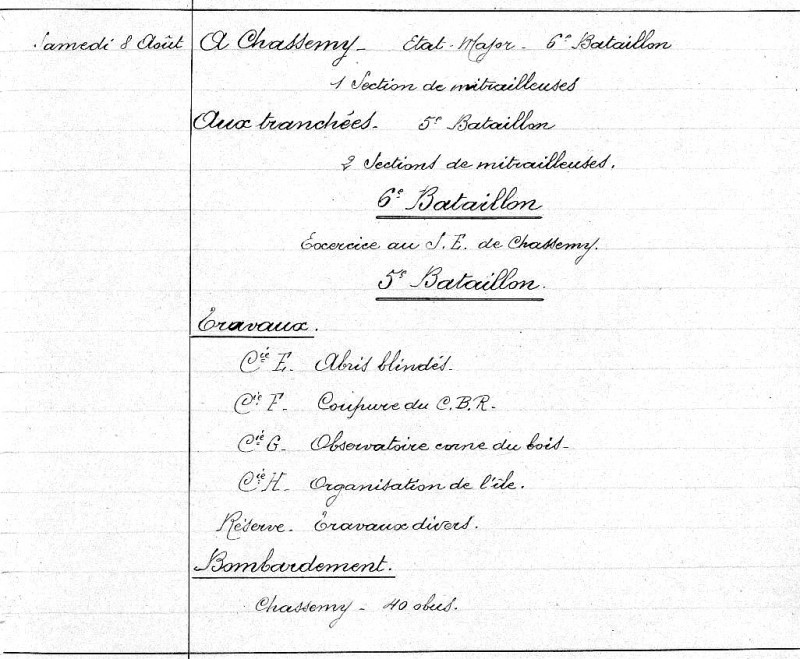 Samedi 8 Août A Chassemy - Etat-Major - 6e Bataillon
1 Section de mitrailleuses
Aux tranchées. 5e Bataillon
2 Sections de mitrailleuses.
6e Bataillon
Exercice au S.E. de Chassemy.
5e Bataillon.
Travaux.
Cie E. Abris blindés.
Cie F. Coupure du C.B.R.
Cie G. Observatoire corne du bois -
Cie H. Organisation de l'île.
Réserve. Travaux divers.
Bombardement.
Chassemy - 40 obus.